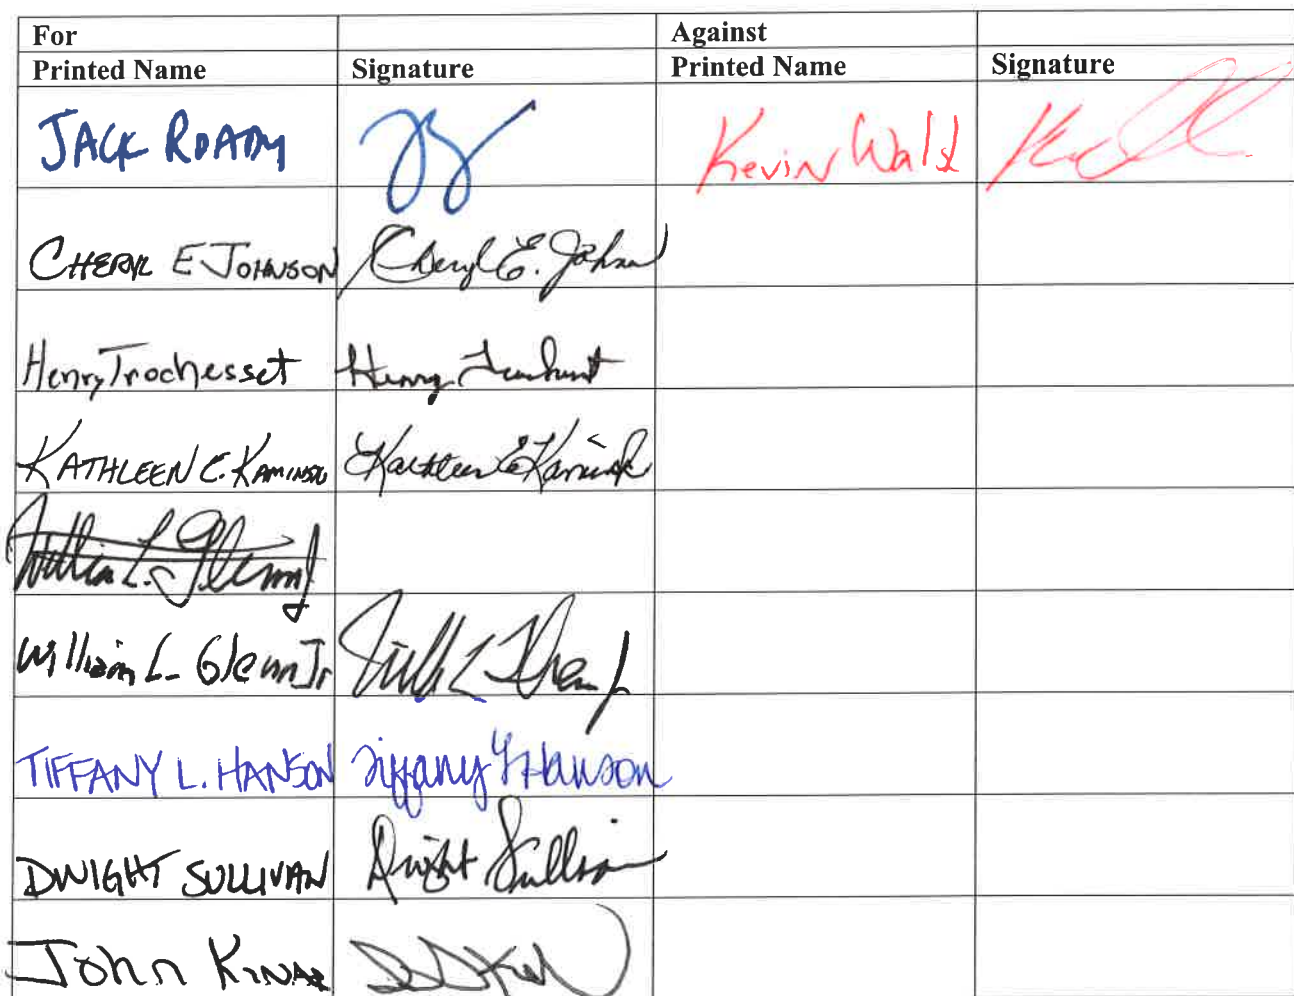 For Against
Printed Name Signature Printed Name Signature
JACK ROADY Kevin Walsh
CHERYL E JOHNSON Cheryl E. Johnson
Henry Trochesset Henry Trochesset
KATHLEEN C. KAMINSKI Kathleen Kaminski
William L. Glenn Jr
William L. Glenn Jr
TIFFANY L. HANSON Tiffany L Hanson
DWIGHT SULLIVAN Dwight Sullivan
John Kinar